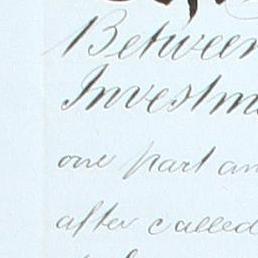 Between
Investm
one part an
after called